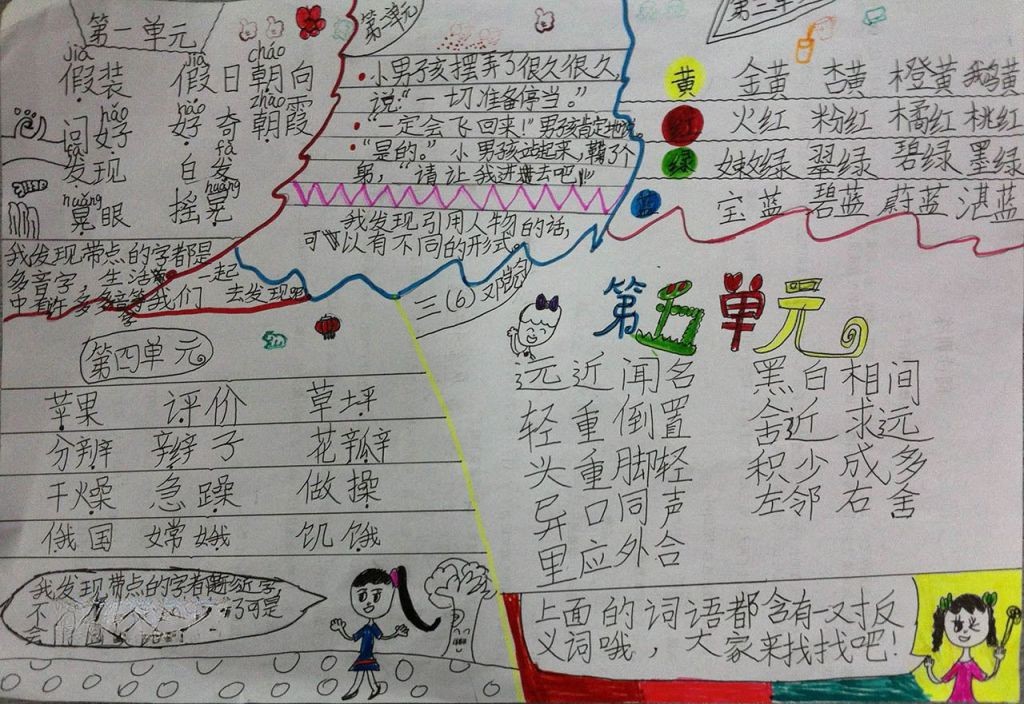 第一单元
jiǎ jià cháo
假装 假日 朝向
hǎo hào zhāo
问好 好奇 朝霞
fā fà
发现 白发
huǎng huàng
晃眼 摇晃
我发现带点的字都是
多音字 生活 一起
中有许多多音字等我们 去发现吧
第二单元
小男孩摆弄了很久很久,
说:“一切准备停当。”
“一定会飞回来!”男孩肯定地说。
“是的。”小男孩站起来,鞠了个
躬,“请让我进去吧!”
我发现引用人物的话,
可以有不同的形式。
第三单元
黄 金黄 杏黄 橙黄 鹅黄
红 火红 粉红 橘红 桃红
绿 嫩绿 翠绿 碧绿 墨绿
蓝 宝蓝 碧蓝 蔚蓝 湛蓝
三(6)邓
第四单元
苹果 评价 草坪
分辨 辫子 花瓣
干燥 急躁 做操
俄国 嫦娥 饥饿
我发现带点的字都是形近字
不
第五单元
远近闻名 黑白相间
轻重倒置 舍近求远
头重脚轻 积少成多
异口同声 左邻右舍
里应外合
上面的词语都含有一对反
义词哦,大家来找找吧!